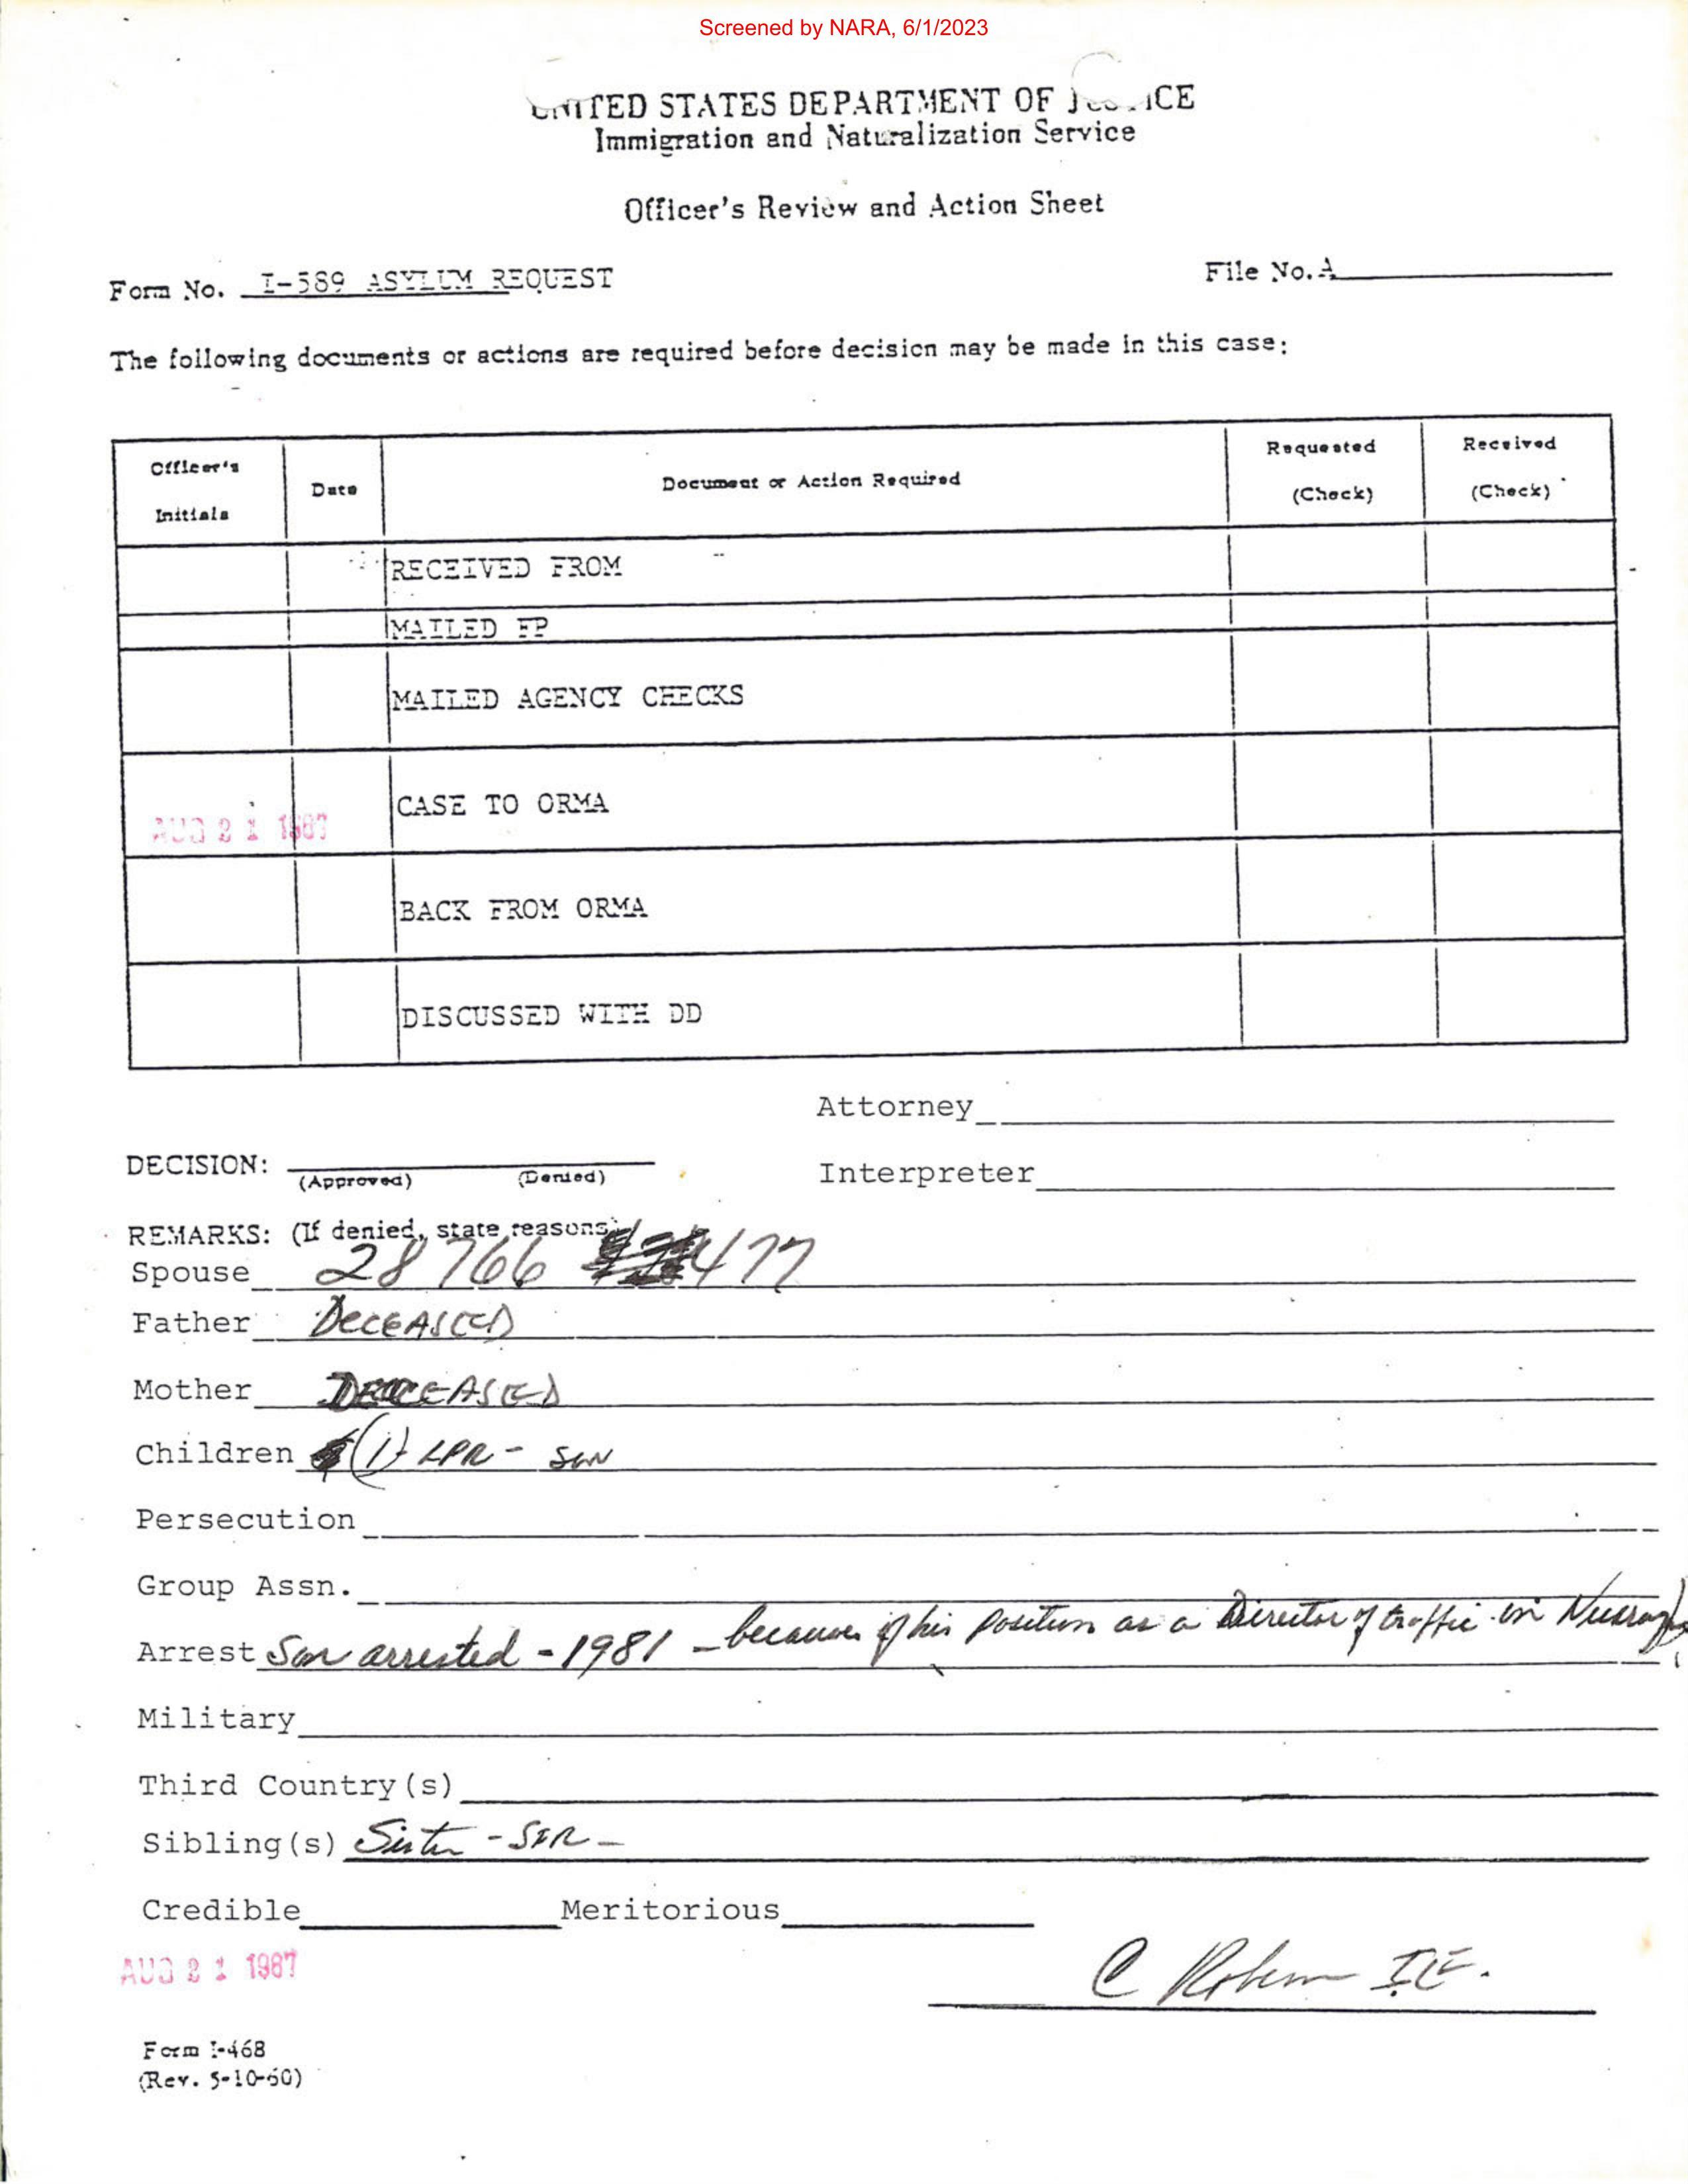 Screened by NARA, 6/1/2023
UNITED STATES DEPARTMENT OF JUSTICE
Immigration and Naturalization Service
Officer's Review and Action Sheet
Form No. I-589 ASYLUM REQUEST
File No. A
The following documents or actions are required before decision may be made in this case:
Officer's Initials
Date
Document or Action Required
Requested (Check)
Received (Check)
RECEIVED FROM
MAILED FP
MAILED AGENCY CHECKS
CASE TO ORMA
AUG 21 1987
BACK FROM ORMA
DISCUSSED WITH DD
Attorney
DECISION: (Approved) (Denied)
Interpreter
REMARKS: (If denied, state reasons)
Spouse 28 766 477
Father DECEASED
Mother DECEASED
Children (1) LPR - SON
Persecution
Group Assn.
Arrest Son arrested - 1981 - because of his position as a Director of traffic in
Military
Third Country(s)
Sibling(s) Sister -
Credible Meritorious
AUG 21 1987
C
Form I-468
(Rev. 5-10-60)